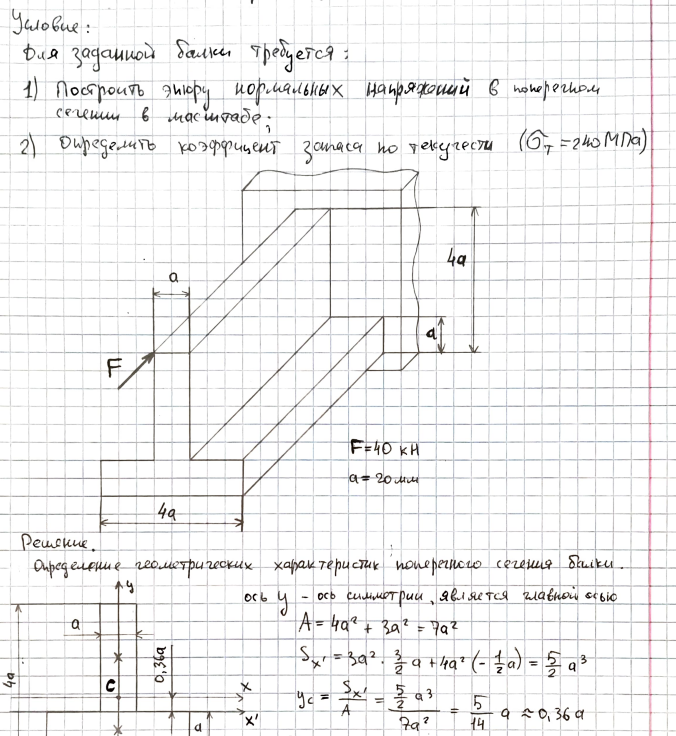 Условие:
Для заданной балки требуется:
1) Построить эпюру нормальных напряжений в поперечном
сечении в масштабе;
2) Определить коэффицент запаса по текучести (σт=240МПа)
a
4a
a
F
F=40 кН
a=20мм
4a
Решение.
Определение геометрических характеристик поперечного сечения балки.
ось y - ось симметрии, является главной осью
y
a
4a
0,36a
C
x
x'
a
A = 4a² + 3a² = 7a²
Sx' = 3a² · 3/2 a + 4a² (-1/2 a) = 5/2 a³
yc = Sx'/A = 5/2 a³ / 7a² = 5/14 a ≈ 0,36a